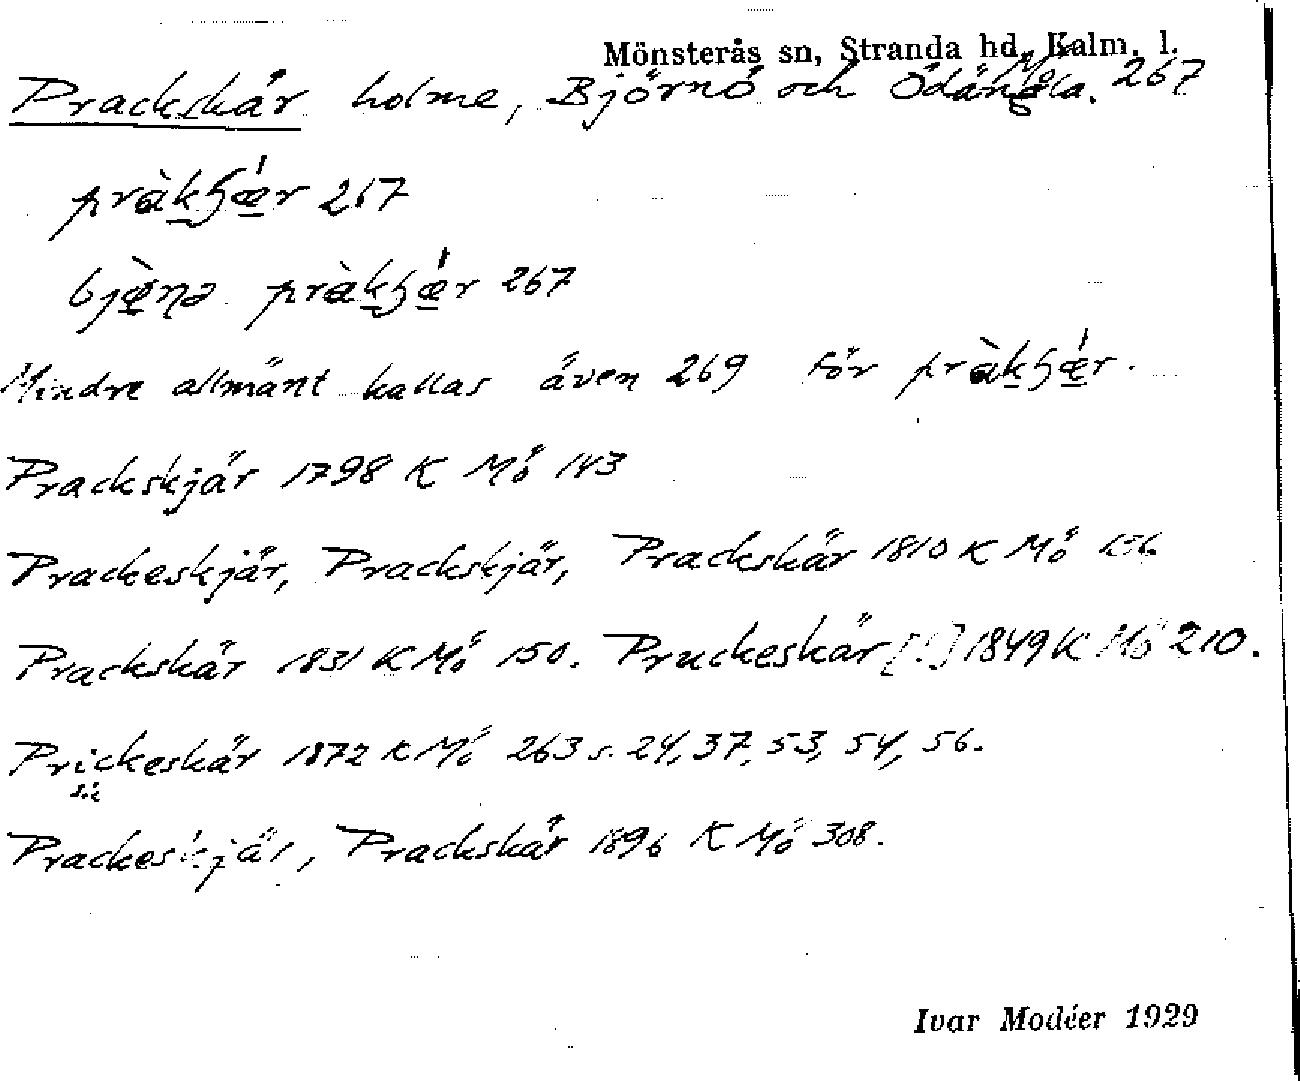 Mönsterås sn, Stranda hd, Kalm. l.
Prackskär holme, Björnö och Ödängla. Mö 267
pràkʃæ̀r 267
bjæ̀ɳə pràkʃæ̀r 267
Mindre allmänt kallas även 269 för pràkʃæ̀r.
Prackskjär 1798 K Mö 143
Prackeskjär, Prackskjär, Prackskär 1810 K Mö
Prackskär 1831 K Mö 150. Pruckeskär [!] 1849 K Mö 210.
Prickeskär 1872 K Mö 263 s. 24, 37, 53, 54, 56.
Prackeskjär, Prackskär 1896 K Mö 308.
Ivar Modéer 1929